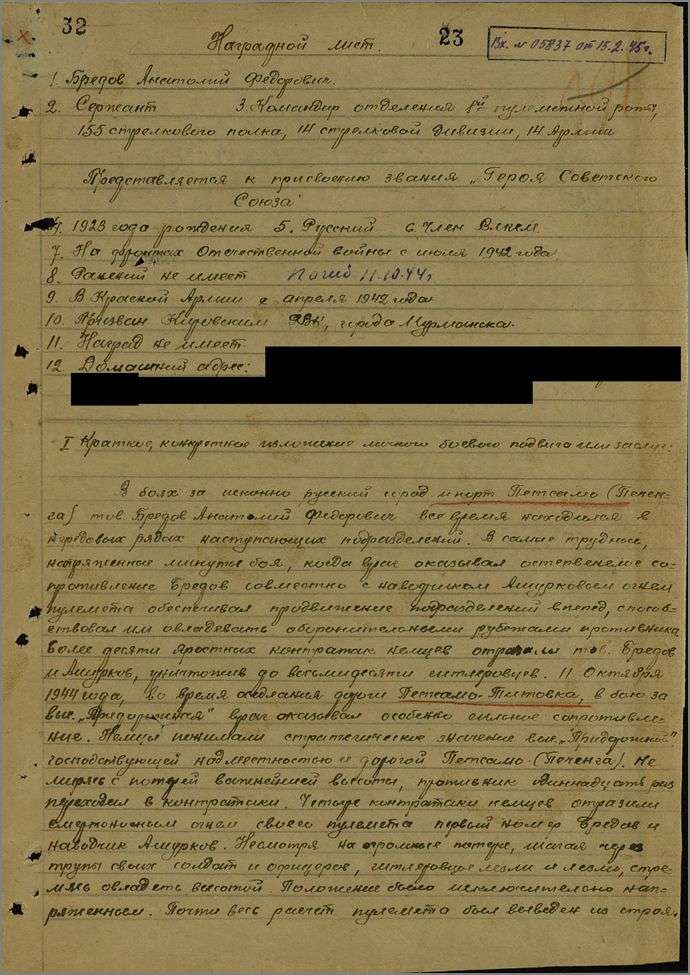 32
23
Вх. № 05837 от 15.2.45г.
Наградной лист.
1. Бредов Анатолий Федорович.
2. Сержант 3. Командир отделения 8й пулеметной роты,
155 стрелкового полка, 14 стрелковой Дивизии, 14 Армии
Представляется к присвоению звания „Героя Советского
Союза"
4. 1923 года рождения 5. Русский 6. Член Влксм
7. На фронтах Отечественной войны с июля 1942 года
8. Ранений не имеет Погиб 11.10.44г
9. В Красной Армии с апреля 1942 года
10. Призван Кировским РВК, города Мурманска.
11. Наград не имеет
12. Домашний адрес:
I Краткое, конкретное изложение личного боевого подвига или заслуг:
В боях за исконно русский город и порт Петсамо (Печен-
га) тов. Бредов Анатолий Федорович все время находился в
передовых рядах наступающих подразделений. В самые трудные,
напряженные минуты боя, когда враг оказывал остервенелое со-
противление Бредов совместно с наводчиком Ашурковым огнем
пулемета обеспечивал продвижение подразделений вперед, способ-
ствовал им овладевать оборонительными рубежами противника
более десяти яростных контратак немцев отразили тов. Бредов
и Ашурков, уничтожив до восьмидесяти гитлеровцев. 11 Октября
1944 года, во время седлания дороги Петсамо-Титовка, в бою за
выс. „Придорожная" враг оказывал особенно сильное сопротивле-
ние. Немцы понимали стратегическое значение выс. „Придорожной"
господствующей над местностью и дорогой Петсамо (Печенга). Не
мирясь с потерей важнейшей высоты, противник одиннадцать раз
переходил в контратаки. Четыре контратаки немцев отразили
смертоносным огнем своего пулемета первый номер Бредов и
наводчик Ашурков. Несмотря на огромные потери, шагая через
трупы своих солдат и офицеров, гитлеровцы лезли и лезли, стре-
мясь овладеть высотой. Положение было исключительно нап-
ряженным. Почти весь расчет пулемета был выведен из строя.